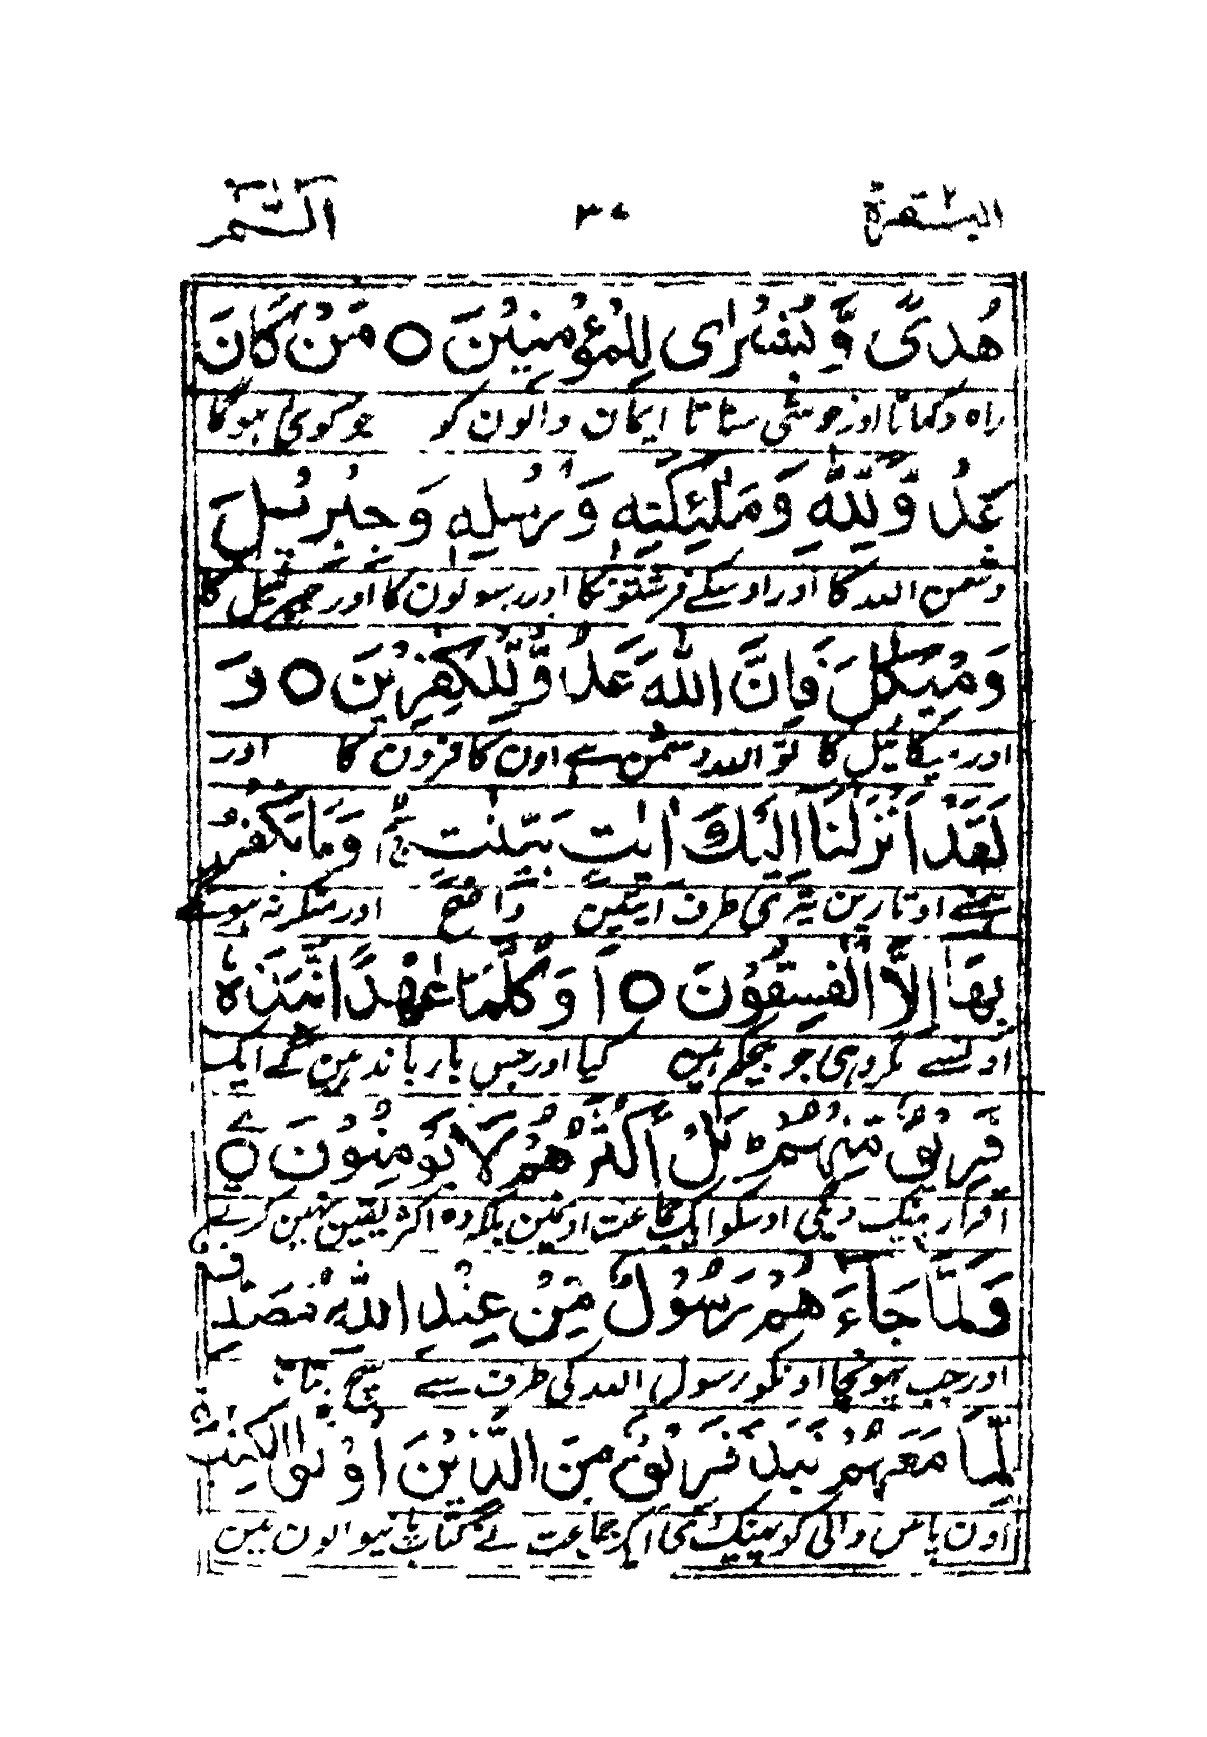 البقرة ٢ ٣٠ الٓمّٓ
هُدًى وَّبُشْرٰى لِلْمُؤْمِنِيْنَ ○ مَنْ كَانَ
راہ دکھاتا اور خوشی سناتا ایمان والون کو جو کوی ہوگا
عَدُوًّا لِّلّٰهِ وَمَلٰٓئِكَتِهٖ وَرُسُلِهٖ وَجِبْرِيْلَ
دشمن اللہ کا اور اوسکے فرشتونکا اور رسولون کا اور جبرئیل کا
وَمِيْكٰىلَ فَاِنَّ اللّٰهَ عَدُوٌّ لِّلْكٰفِرِيْنَ ○ وَ
اور میکائیل کا تو اللہ دشمن ہے اون کافرون کا اور
لَقَدْ اَنْزَلْنَآ اِلَيْكَ اٰيٰتٍۢ بَيِّنٰتٍ ۚ وَمَا يَكْفُرُ
ہمنے اوتارین تیری طرف آیتین واضح اور منکر نہ ہونگے
بِهَآ اِلَّا الْفٰسِقُوْنَ ○ اَوَكُلَّمَا عٰهَدُوْا عَهْدًا نَّبَذَهٗ
اونسے مگر وہی جو بیحکم ہین کیا اور جس بار باندہین گے ایک
فَرِيْقٌ مِّنْهُمْ ؕ بَلْ اَكْثَرُهُمْ لَا يُؤْمِنُوْنَ ○
اقرار پھینک دیگی اوسکو ایک جماعت اونمین بلکہ وہ اکثر یقین نہین کرتے
وَلَمَّا جَآءَهُمْ رَسُوْلٌ مِّنْ عِنْدِ اللّٰهِ مُصَدِّقٌ
اور جب پہونچا اونکو رسول اللہ کی طرف سے سچ بتاتا
لِّمَا مَعَهُمْ نَبَذَ فَرِيْقٌ مِّنَ الَّذِيْنَ اُوْتُوا الْكِتٰبَ
اون پاس والی کو پھینک دی ایک جماعت نے کتاب پانیوالون مین